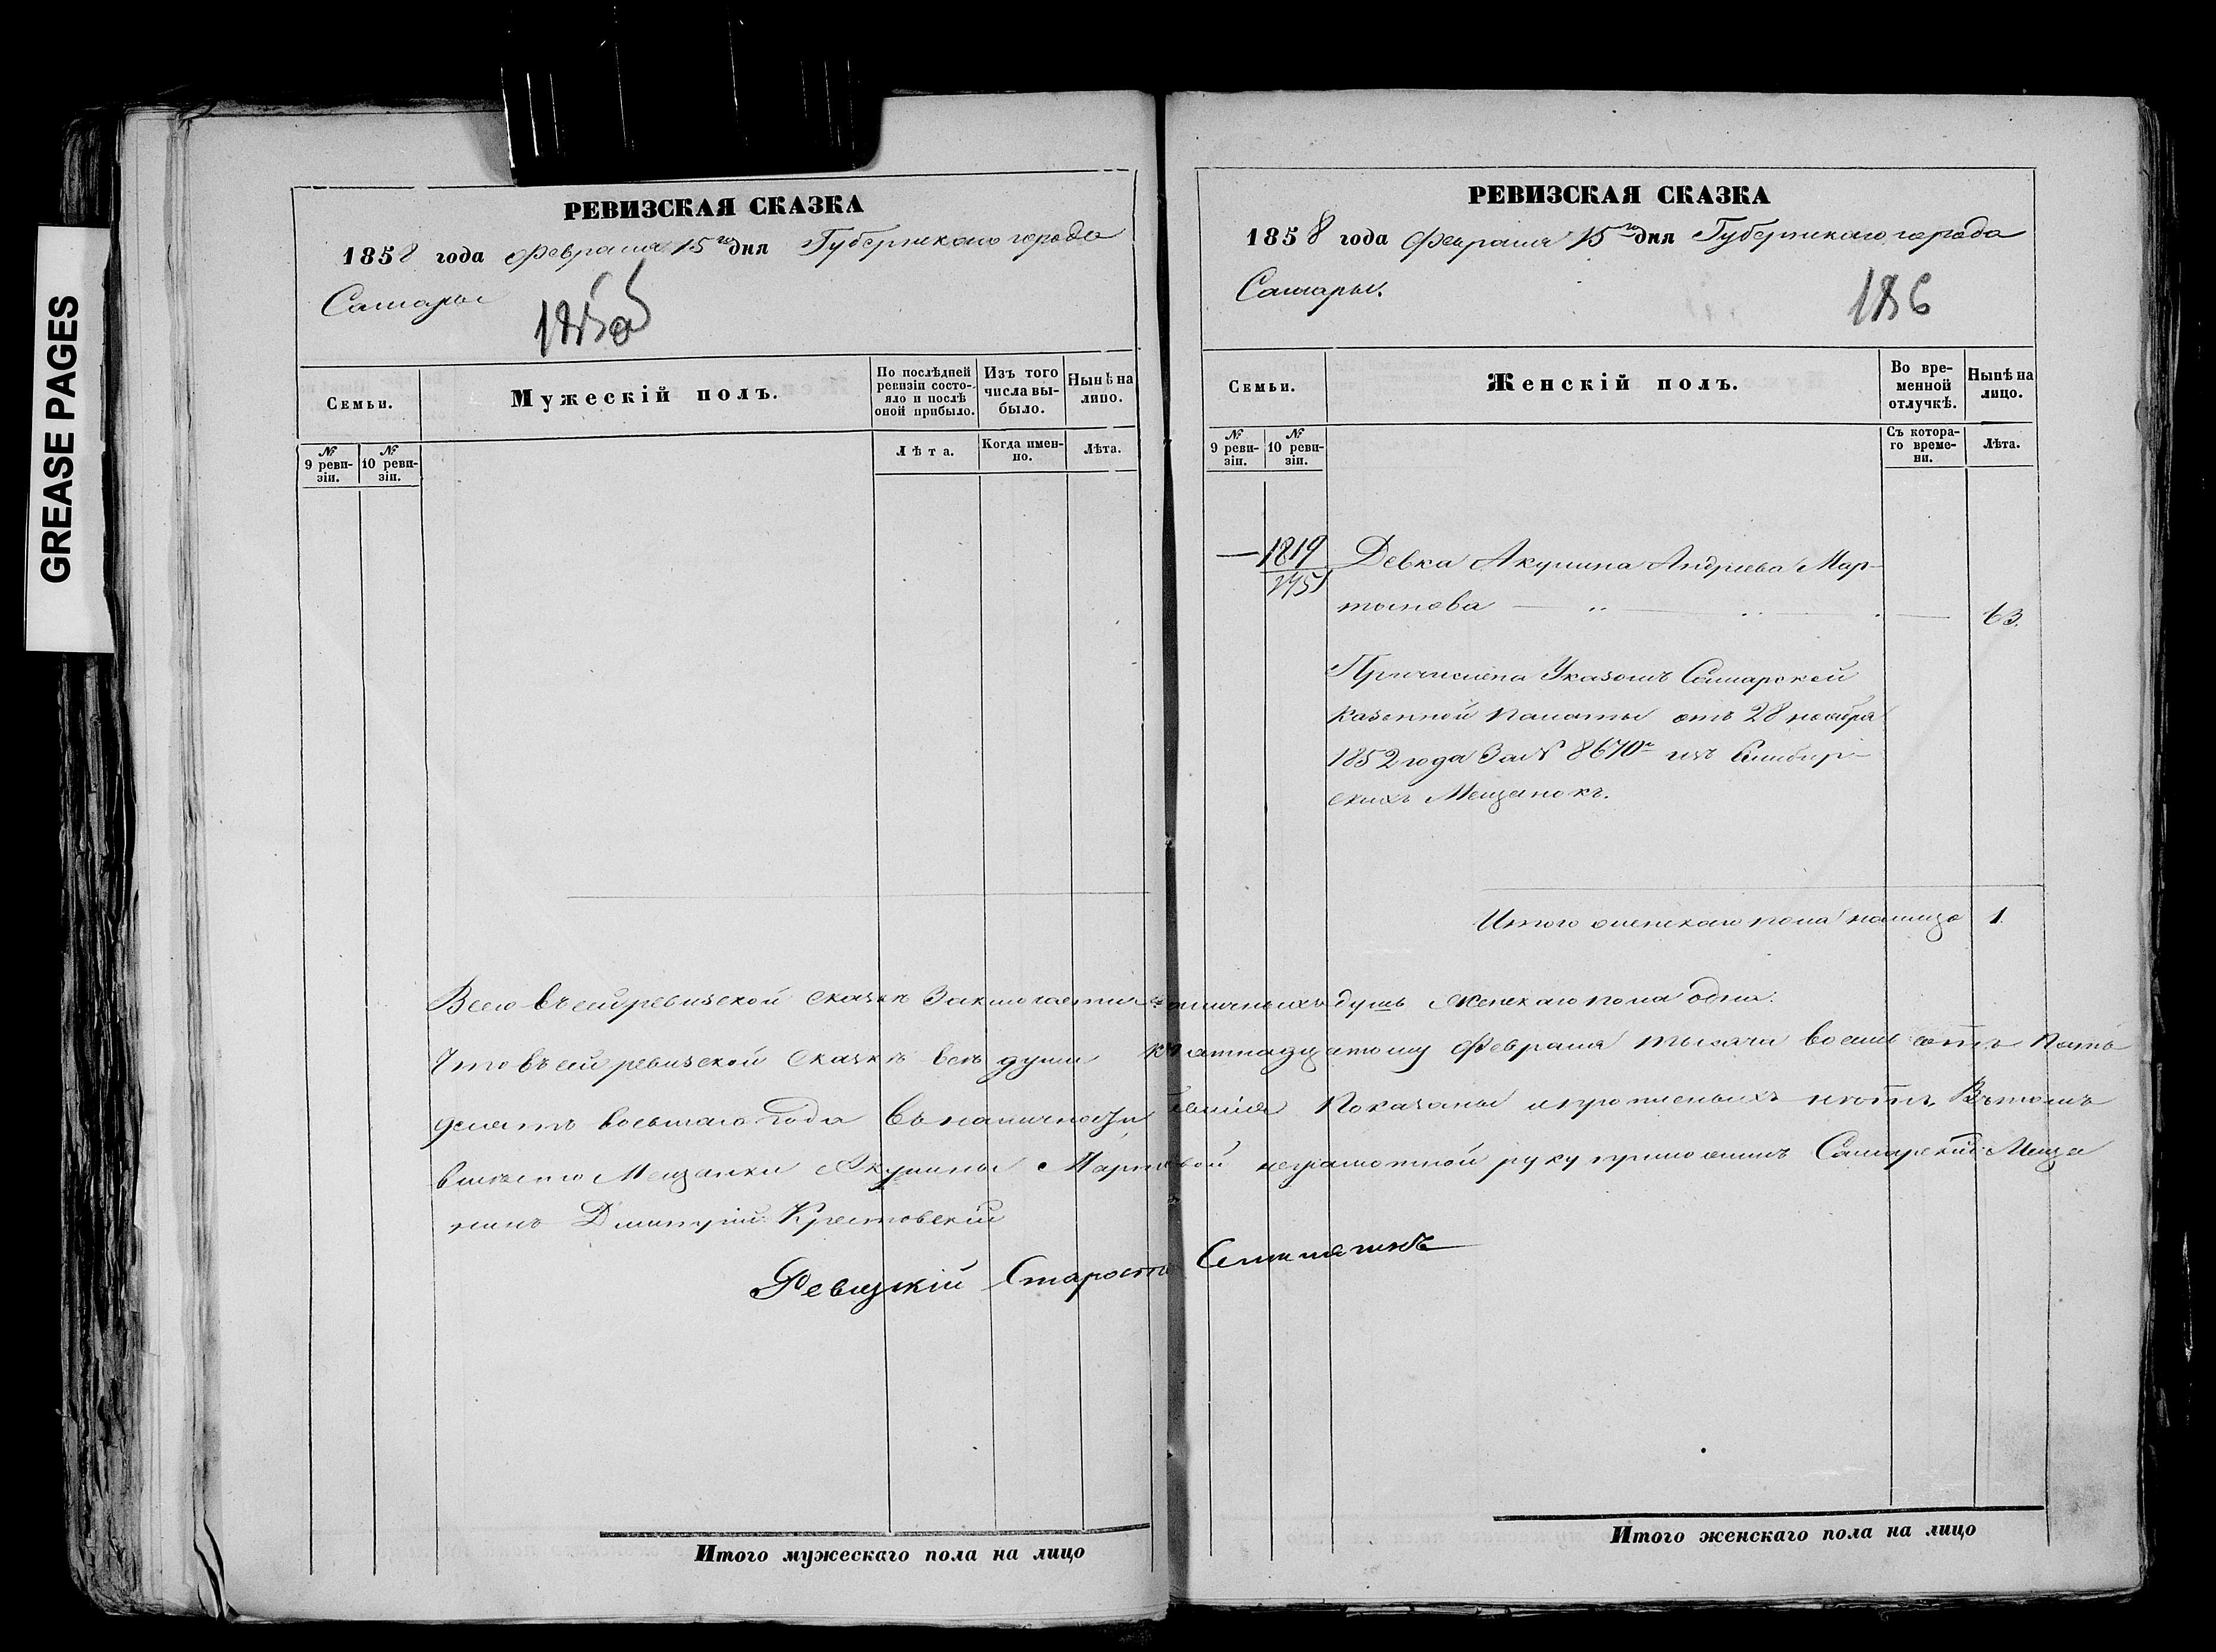 GREASE PAGES
РЕВИЗСКАЯ СКАЗКА
1858 года Февраля 15го дня Губернскаго города
Самары
СЕМЬИ.
Мужескій полъ.
По послѣдней ревизіи состояло и послѣ оной прибыло.
Изъ того числа выбыло.
Нынѣ на лицо.
№ 9 ревизіи.
№ 10 ревизіи.
Лѣта.
Когда именно.
Лѣта.
Итого мужескаго пола на лицо
РЕВИЗСКАЯ СКАЗКА
1858 года Февраля 15го дня Губернскаго города
Самары.
186
СЕМЬИ.
Женскій полъ.
Во временной отлучкѣ.
Нынѣ на лицо.
№ 9 ревизіи.
№ 10 ревизіи.
Съ котораго времени.
Лѣта.
— 1819 Девка Акулина Андреева Мар-
тынова — 63.
Причислена Указомъ Самарской
Казенной Палаты отъ 28 ноября
1852 года За № 8670м изъ Симбир-
скихъ Мещанокъ.
Итого женскаго пола налицо 1.
Всего въ сей ревизской сказкѣ Заключается наличныхъ душъ Женскаго пола одна.
Что въ сей ревизской Сказкѣ всѣ души к пятнадцатому Февраля тысяча восемь сотъ Пять
десятъ восьмаго Года въ наличности бывшія Показаны и пропиеныхъ нѣтъ, Въ томъ
вместо Мещанки Акулины Мартновой неграмотной руку приложилъ Самарский Меща
нинъ Дмитрій Крестовскій
Ревизкій Староста
Итого женскаго пола на лицо